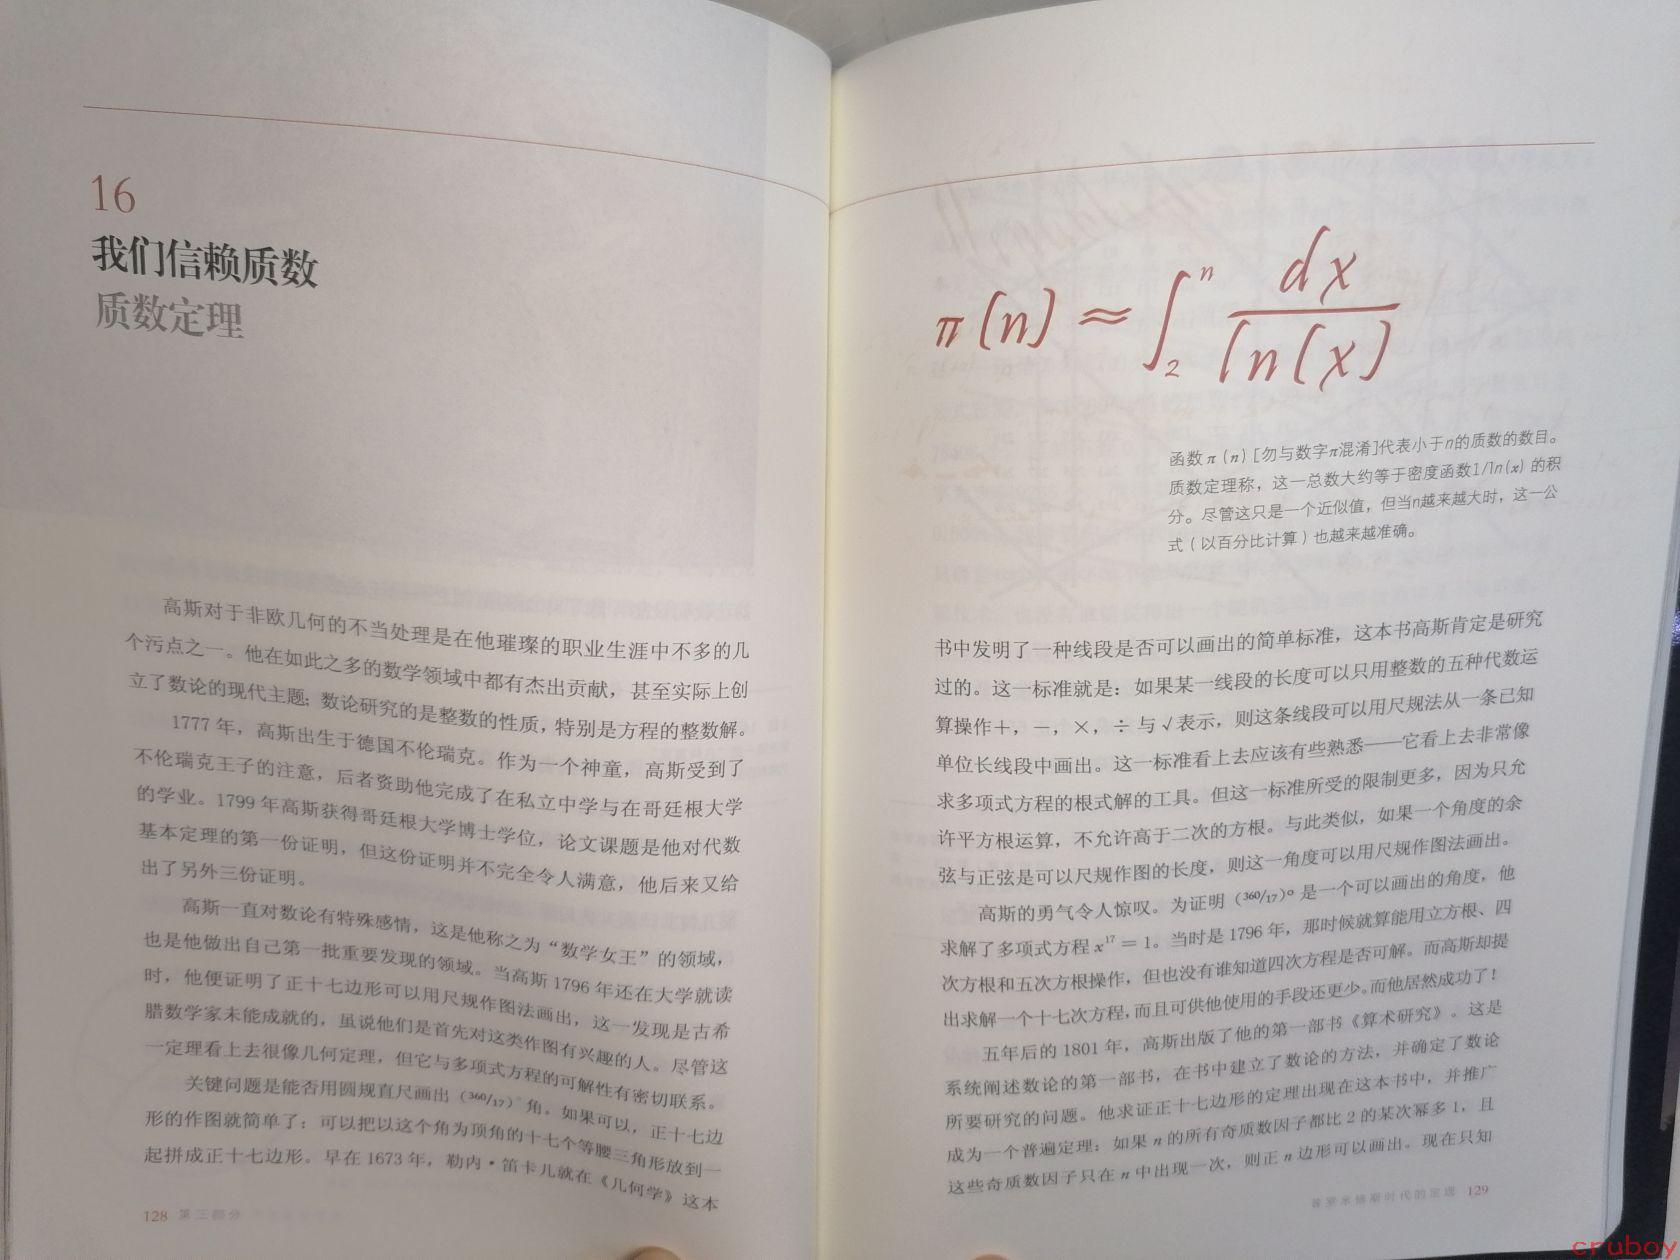 16
我们信赖质数
质数定理
高斯对于非欧几何的不当处理是在他璀璨的职业生涯中不多的几
个污点之一。他在如此之多的数学领域中都有杰出贡献，甚至实际上创
立了数论的现代主题；数论研究的是整数的性质，特别是方程的整数解。
1777 年，高斯出生于德国不伦瑞克。作为一个神童，高斯受到了
不伦瑞克王子的注意，后者资助他完成了在私立中学与在哥廷根大学
的学业。1799 年高斯获得哥廷根大学博士学位，论文课题是他对代数
基本定理的第一份证明，但这份证明并不完全令人满意，他后来又给
出了另外三份证明。
高斯一直对数论有特殊感情，这是他称之为“数学女王”的领域，
也是他做出自己第一批重要发现的领域。当高斯 1796 年还在大学就读
时，他便证明了正十七边形可以用尺规作图法画出，这一发现是古希
腊数学家未能成就的，虽说他们是首先对这类作图有兴趣的人。尽管这
一定理看上去很像几何定理，但它与多项式方程的可解性有密切联系。
关键问题是能否用圆规直尺画出（360/17）°角。如果可以，正十七边
形的作图就简单了：可以把以这个角为顶角的十七个等腰三角形放到一
起拼成正十七边形。早在 1673 年，勒内·笛卡儿就在《几何学》这本
128 第三部分
π(n) ≈ ∫₂ⁿ dx/ln(x)
函数π（n）[勿与数字π混淆]代表小于n的质数的数目。
质数定理称，这一总数大约等于密度函数1/ln(x)的积
分。尽管这只是一个近似值，但当n越来越大时，这一公
式（以百分比计算）也越来越准确。
书中发明了一种线段是否可以画出的简单标准，这本书高斯肯定是研究
过的。这一标准就是：如果某一线段的长度可以只用整数的五种代数运
算操作＋，－，×，÷与√表示，则这条线段可以用尺规法从一条已知
单位长线段中画出。这一标准看上去应该有些熟悉——它看上去非常像
求多项式方程的根式解的工具。但这一标准所受的限制更多，因为只允
许平方根运算，不允许高于二次的方根。与此类似，如果一个角度的余
弦与正弦是可以尺规作图的长度，则这一角度可以用尺规作图法画出。
高斯的勇气令人惊叹。为证明（360/17）°是一个可以画出的角度，他
求解了多项式方程 x¹⁷＝1。当时是 1796 年，那时候就算能用立方根、四
次方根和五次方根操作，但也没有谁知道四次方程是否可解。而高斯却提
出求解一个十七次方程，而且可供他使用的手段还更少。而他居然成功了！
五年后的 1801 年，高斯出版了他的第一部书《算术研究》。这是
系统阐述数论的第一部书，在书中建立了数论的方法，并确定了数论
所要研究的问题。他求证正十七边形的定理出现在这本书中，并推广
成为一个普遍定理：如果 n 的所有奇质数因子都比 2 的某次幂多 1，且
这些奇质数因子只在 n 中出现一次，则正 n 边形可以画出。现在只知
普罗米修斯时代的定理 129
cruboy